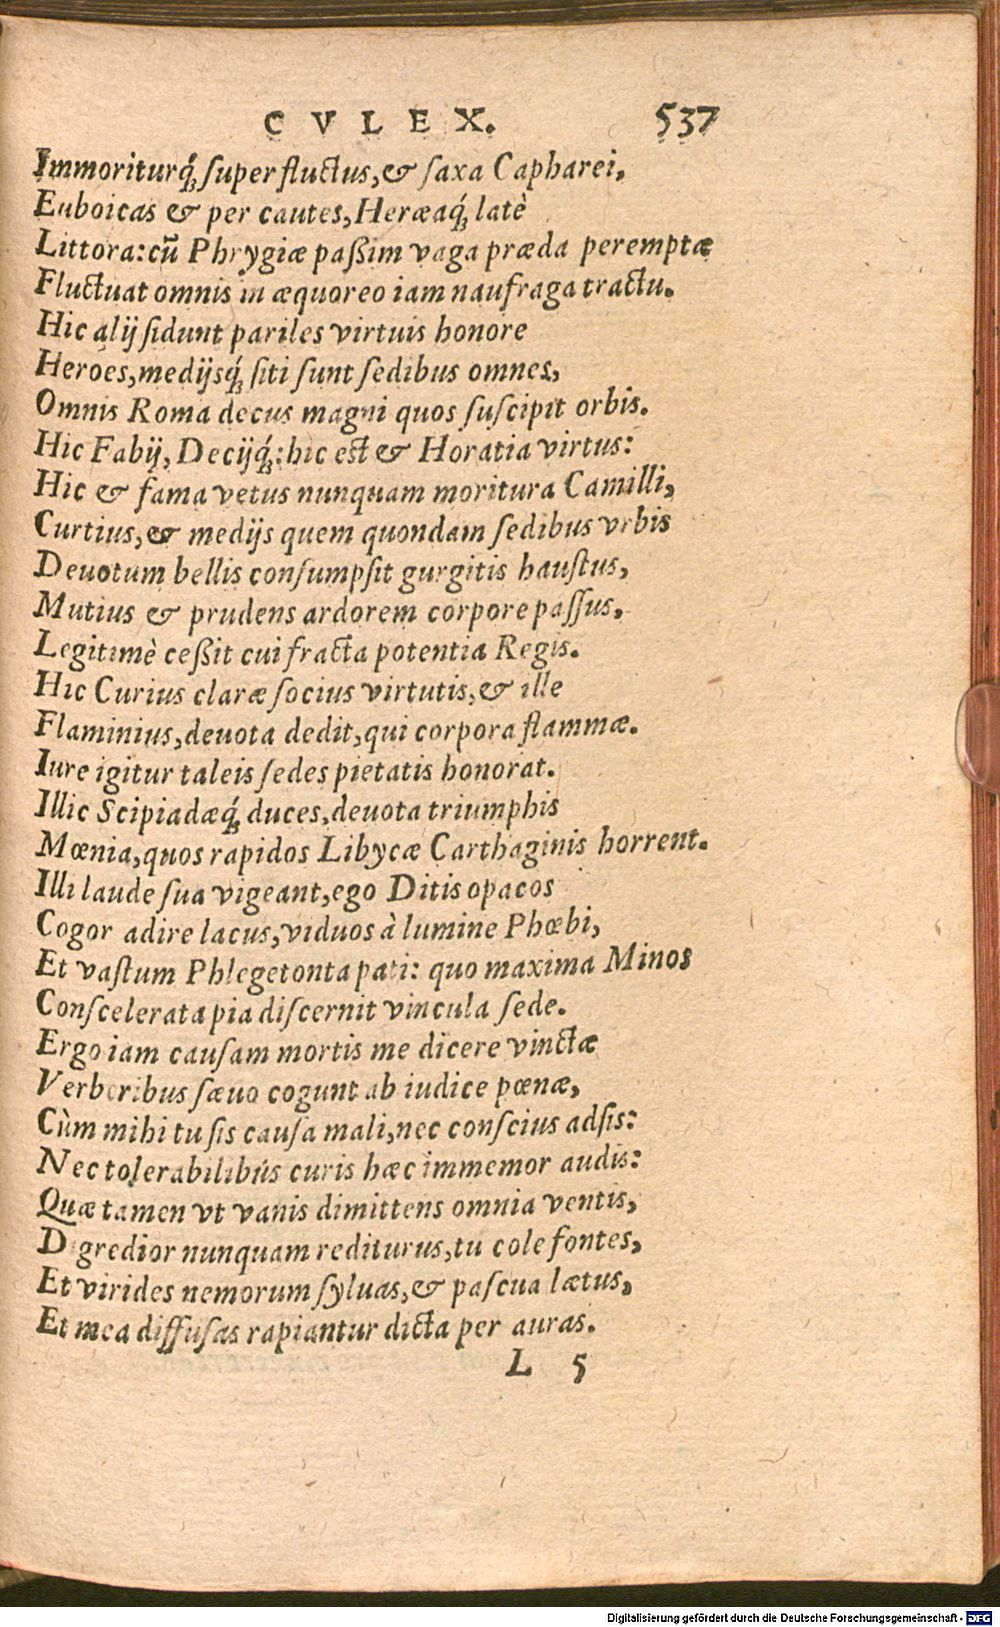 CVLEX. 537
Immoriturq́; ſuper fluctus, & ſaxa Capharei,
Euboicas & per cautes, Heræaq́; latè
Littora: cũ Phrygiæ paßim vaga præda peremptæ
Fluctuat omnis in æquoreo iam naufraga tractu.
Hic alij ſidunt pariles virtuis honore
Heroes, medijsq́; ſiti ſunt ſedibus omnes,
Omnis Roma decus magni quos ſuſcipit orbis.
Hic Fabij, Decijq́;: hic est & Horatia virtus:
Hic & fama vetus nunquam moritura Camilli,
Curtius, & medijs quem quondam ſedibus vrbis
Deuotum bellis conſumpſit gurgitis hauſtus,
Mutius & prudens ardorem corpore paſſus,
Legitimè ceßit cui fracta potentia Regis.
Hic Curius claræ ſocius virtutis, & ille
Flaminius, deuota dedit, qui corpora flammæ.
Iure igitur taleis ſedes pietatis honorat.
Illic Scipiadæq́; duces, deuota triumphis
Mœnia, quos rapidos Libycæ Carthaginis horrent.
Illi laude ſua vigeant, ego Ditis opacos
Cogor adire lacus, viduos à lumine Phœbi,
Et vaſtum Phlegetonta pati: quo maxima Minos
Conſcelerata pia diſcernit vincula ſede.
Ergo iam cauſam mortis me dicere vinctæ
Verberibus ſæuo cogunt ab iudice pœnæ,
Cùm mihi tu ſis cauſa mali, nec conſcius adſis:
Nec tolerabilibús curis hæc immemor audis:
Quæ tamen vt vanis dimittens omnia ventis,
Digredior nunquam rediturus, tu cole fontes,
Et virides nemorum ſyluas, & paſcua lætus,
Et mea diffuſas rapiantur dicta per auras.
L 5
Digitalisierung gefördert durch die Deutsche Forschungsgemeinschaft - DFG